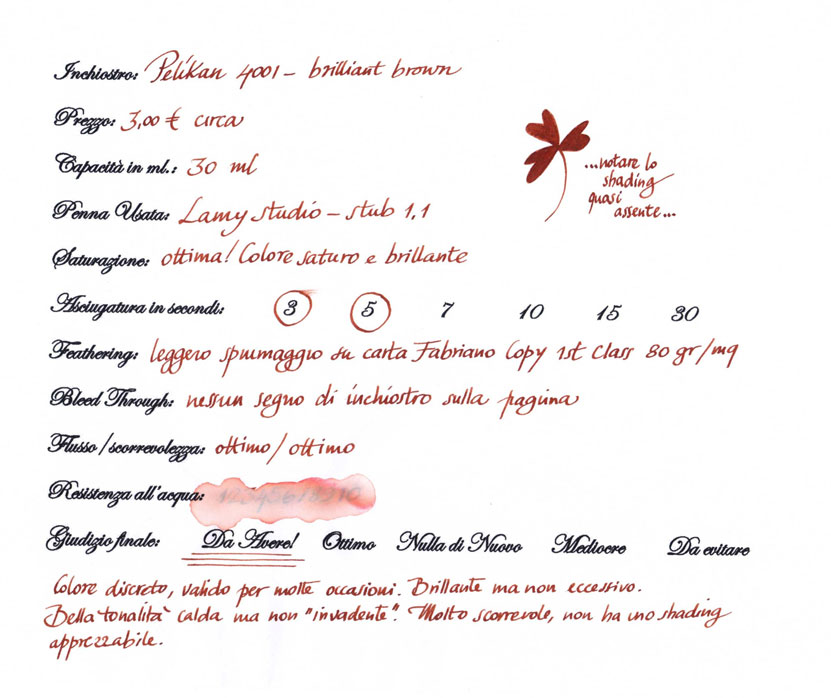 Inchiostro: Pelikan 4001 - brilliant brown
Prezzo: 3,00 € circa
Capacità in ml.: 30 ml
...notare lo
shading
quasi
assente...
Penna Usata: Lamy studio - stub 1,1
Saturazione: ottima! Colore saturo e brillante
Asciugatura in secondi: 3 5 7 10 15 30
Feathering: leggero spiumaggio su carta Fabriano Copy 1st Class 80 gr/mq
Bleed Through: nessun segno di inchiostro sulla pagina
Flusso/scorrevolezza: ottimo/ottimo
Resistenza all'acqua: 12345678910
Giudizio finale: Da Avere! Ottimo Nulla di Nuovo Mediocre Da evitare
Colore discreto, valido per molte occasioni. Brillante ma non eccessivo.
Bella tonalità calda ma non "invadente". Molto scorrevole, non ha uno shading
apprezzabile.